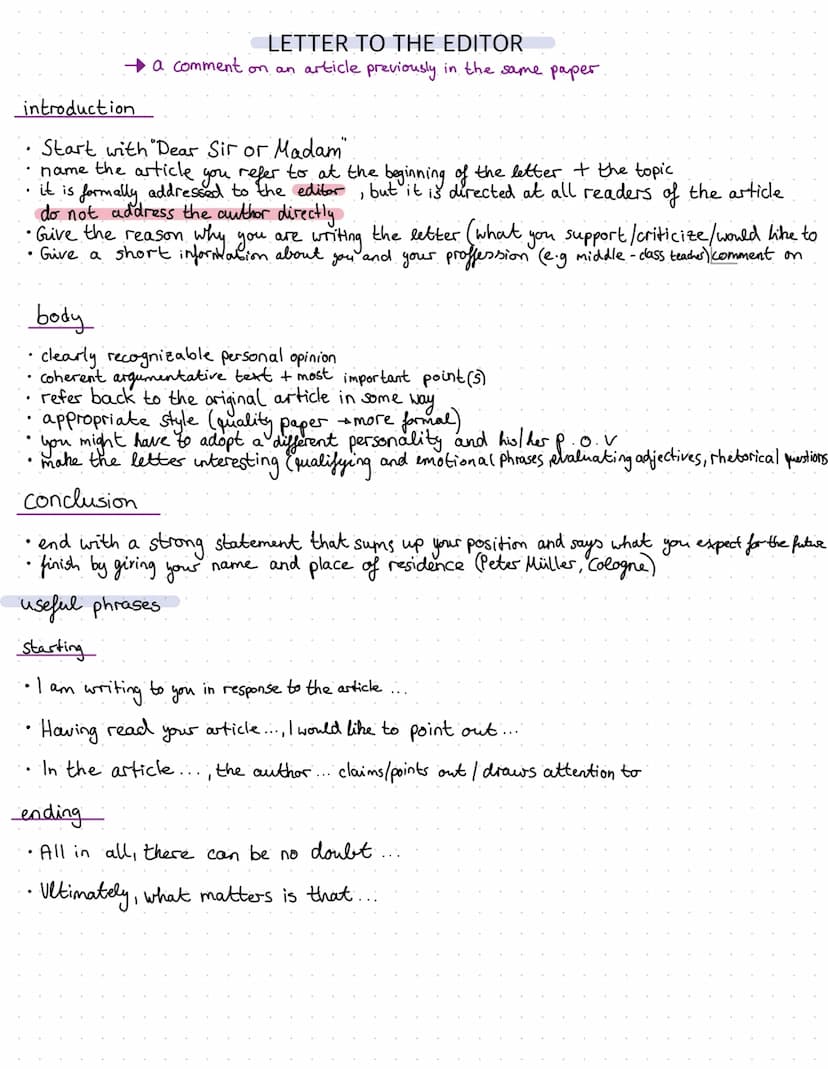 LETTER TO THE EDITOR
→ a comment on an article previously in the same paper
introduction
• Start with "Dear Sir or Madam"
• name the article you refer to at the beginning of the letter + the topic
• it is formally addressed to the editor , but it is directed at all readers of the article
do not address the author directly
• Give the reason why you are writing the letter (what you support/criticize/would like to
• Give a short information about you and your proffession (e.g middle-class teacher) comment on
body
• clearly recognizable personal opinion
• coherent argumentative text + most important point(s)
• refer back to the original article in some way
• appropriate style (quality paper → more formal)
• you might have to adopt a different personality and his/her p.o.v
• make the letter interesting (qualifying and emotional phrases, evaluating adjectives, rhetorical questions
conclusion
• end with a strong statement that sums up your position and says what you expect for the future
• finish by giving your name and place of residence (Peter Müller, Cologne)
useful phrases
starting
• I am writing to you in response to the article ...
• Having read your article ..., I would like to point out ...
• In the article ..., the author ... claims/points out / draws attention to
ending
• All in all, there can be no doubt ...
• Ultimately, what matters is that ...